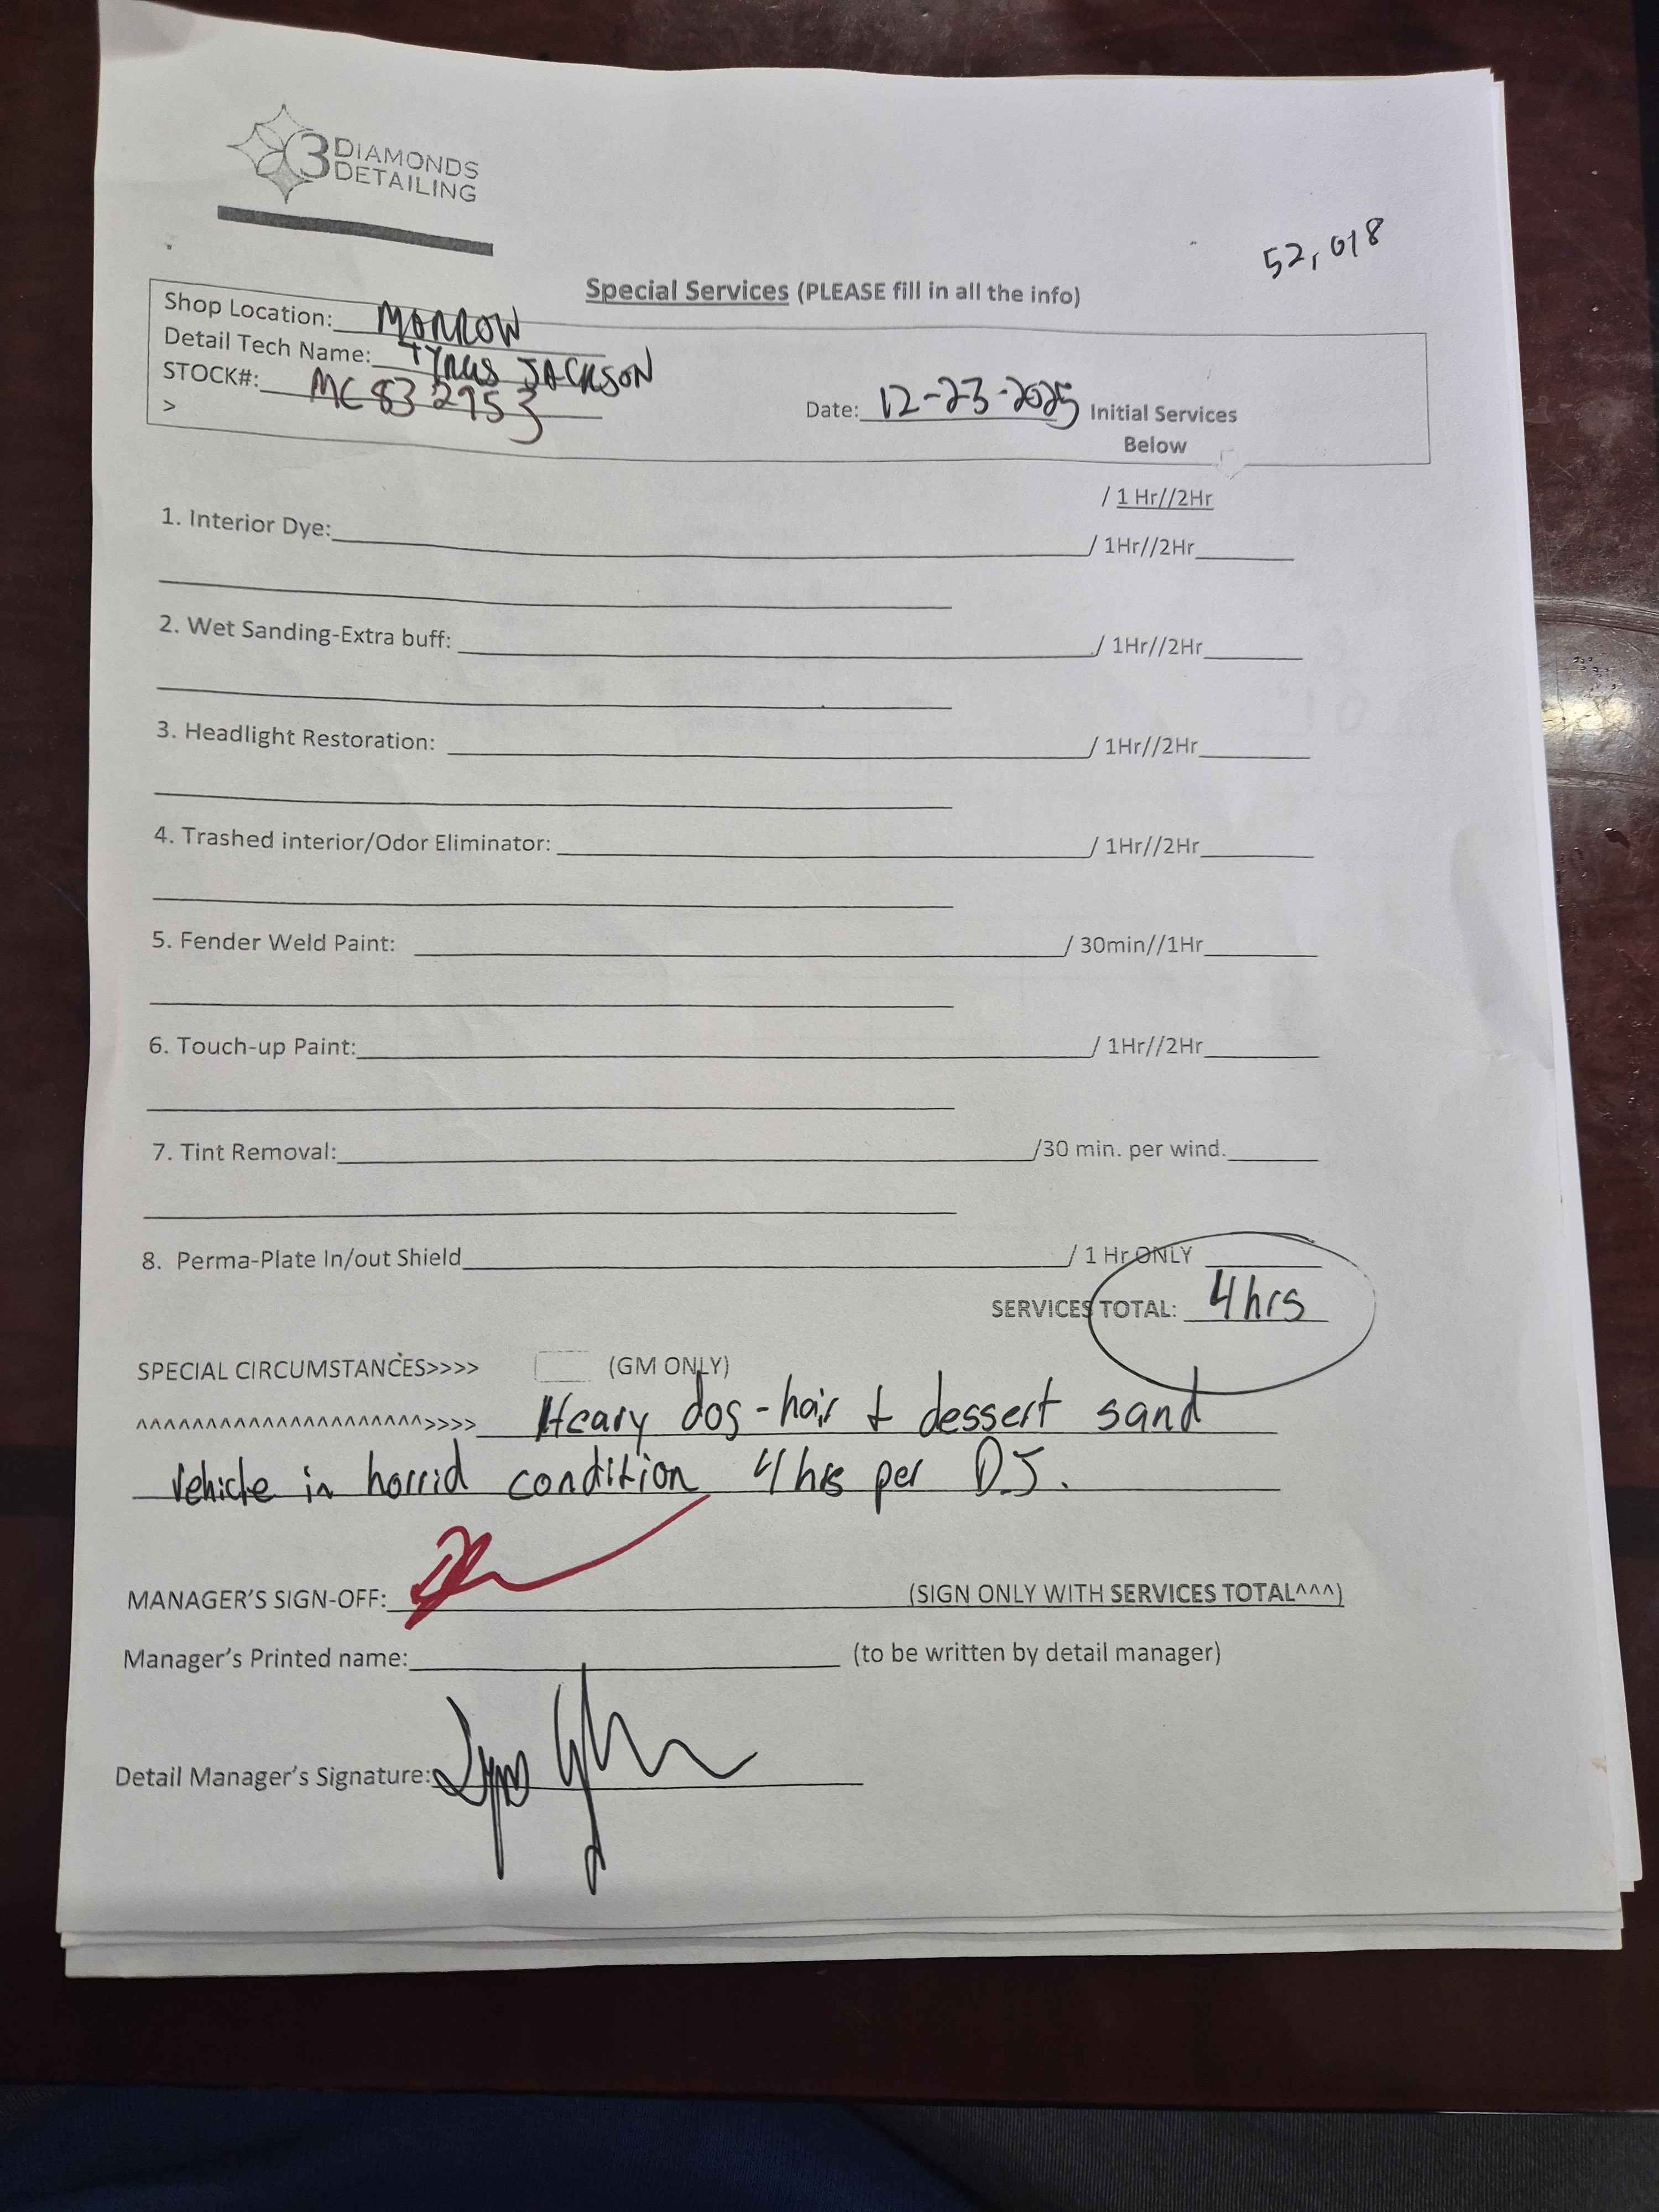 3 DIAMONDS
DETAILING
52,018
Special Services (PLEASE fill in all the info)
Shop Location: MORROW
Detail Tech Name: TYRUS JACKSON
STOCK#: MC832953
>
Date: 12-23-2025 Initial Services
Below
/ 1 Hr//2Hr
1. Interior Dye: / 1Hr//2Hr
2. Wet Sanding-Extra buff: / 1Hr//2Hr
3. Headlight Restoration: / 1Hr//2Hr
4. Trashed interior/Odor Eliminator: / 1Hr//2Hr
5. Fender Weld Paint: / 30min//1Hr
6. Touch-up Paint: / 1Hr//2Hr
7. Tint Removal: /30 min. per wind.
8. Perma-Plate In/out Shield / 1 Hr ONLY
SERVICES TOTAL: 4 hrs
SPECIAL CIRCUMSTANCES>>>> (GM ONLY)
^^^^^^^^^^^^^^^^^^^^^>>>> Heavy dog-hair + dessert sand
vehicle in horrid condition 4 hrs per D.J.
MANAGER'S SIGN-OFF: (SIGN ONLY WITH SERVICES TOTAL^^^)
Manager's Printed name: (to be written by detail manager)
Detail Manager's Signature: